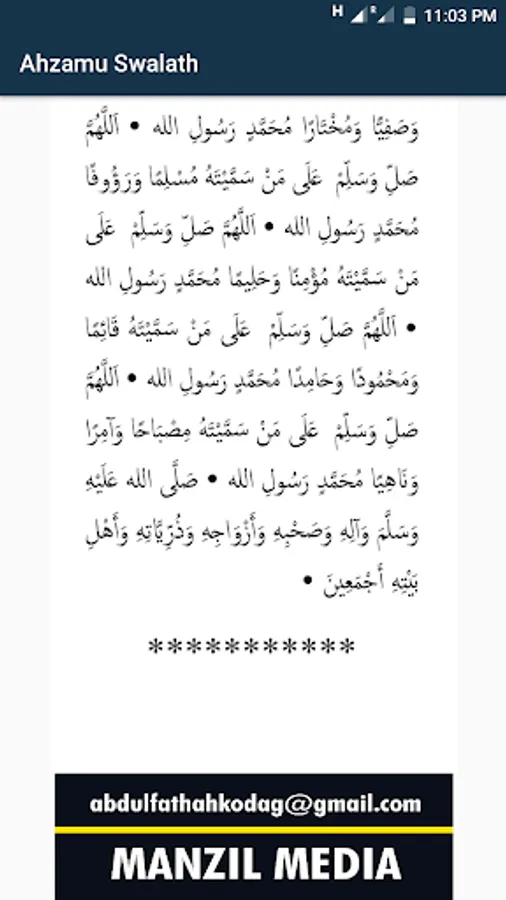 H R 11:03 PM
Ahzamu Swalath
وَصَفِيًّا وَمُخْتَارًا مُحَمَّدٍ رَسُولِ الله • اَللَّهُمَّ
صَلِّ وَسَلِّمْ عَلَى مَنْ سَمَّيْتَهُ مُسْلِمًا وَرَؤُوفًا
مُحَمَّدٍ رَسُولِ الله • اَللَّهُمَّ صَلِّ وَسَلِّمْ عَلَى
مَنْ سَمَّيْتَهُ مُؤْمِنًا وَحَلِيمًا مُحَمَّدٍ رَسُولِ الله
• اَللَّهُمَّ صَلِّ وَسَلِّمْ عَلَى مَنْ سَمَّيْتَهُ قَائِمًا
وَمَحْمُودًا وَحَامِدًا مُحَمَّدٍ رَسُولِ الله • اَللَّهُمَّ
صَلِّ وَسَلِّمْ عَلَى مَنْ سَمَّيْتَهُ مِصْبَاحًا وَآمِرًا
وَنَاهِيًا مُحَمَّدٍ رَسُولِ الله • صَلَّى الله عَلَيْهِ
وَسَلَّمَ وَآلِهِ وَصَحْبِهِ وَأَزْوَاجِهِ وَذُرِّيَّاتِهِ وَأَهْلِ
بَيْتِهِ أَجْمَعِينَ •
***********
abdulfathahkodag@gmail.com
MANZIL MEDIA